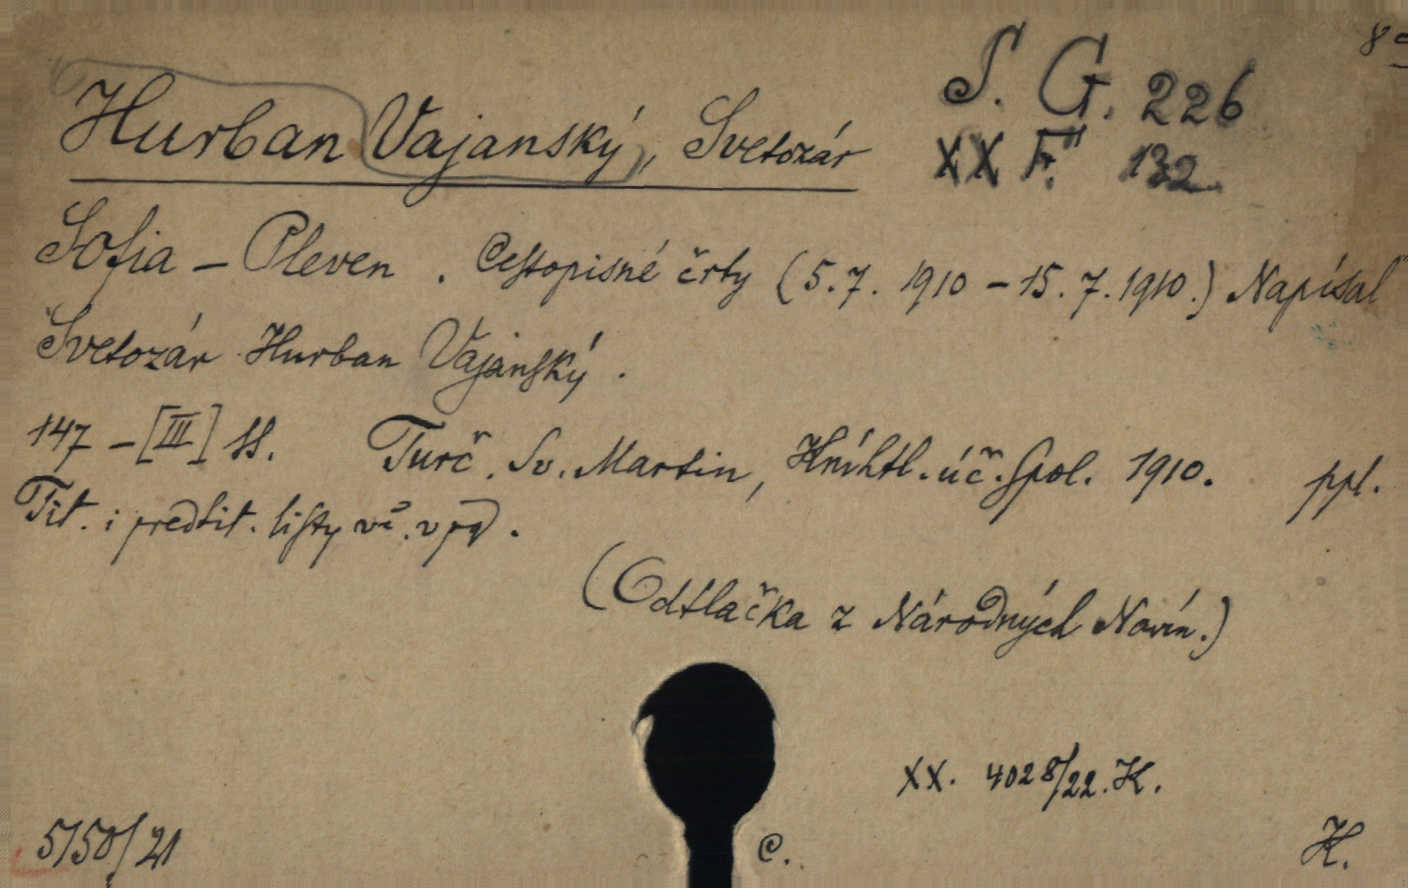 8°
S. G. 226
Hurban Vajanský, Svetozár
XX F. 132
Sofia – Pleven. Cestopisné črty (5.7. 1910 – 15.7.1910.) Napísal
Svetozár Hurban Vajanský.
147 – [III] ss. Turč. Sv. Martin, Kníhtl. úč. spol. 1910. ppl.
Tit. i predtit. listy
(Odtlačka z Národných Novín.)
XX. 4028/22. K.
5150/21
C.
K.